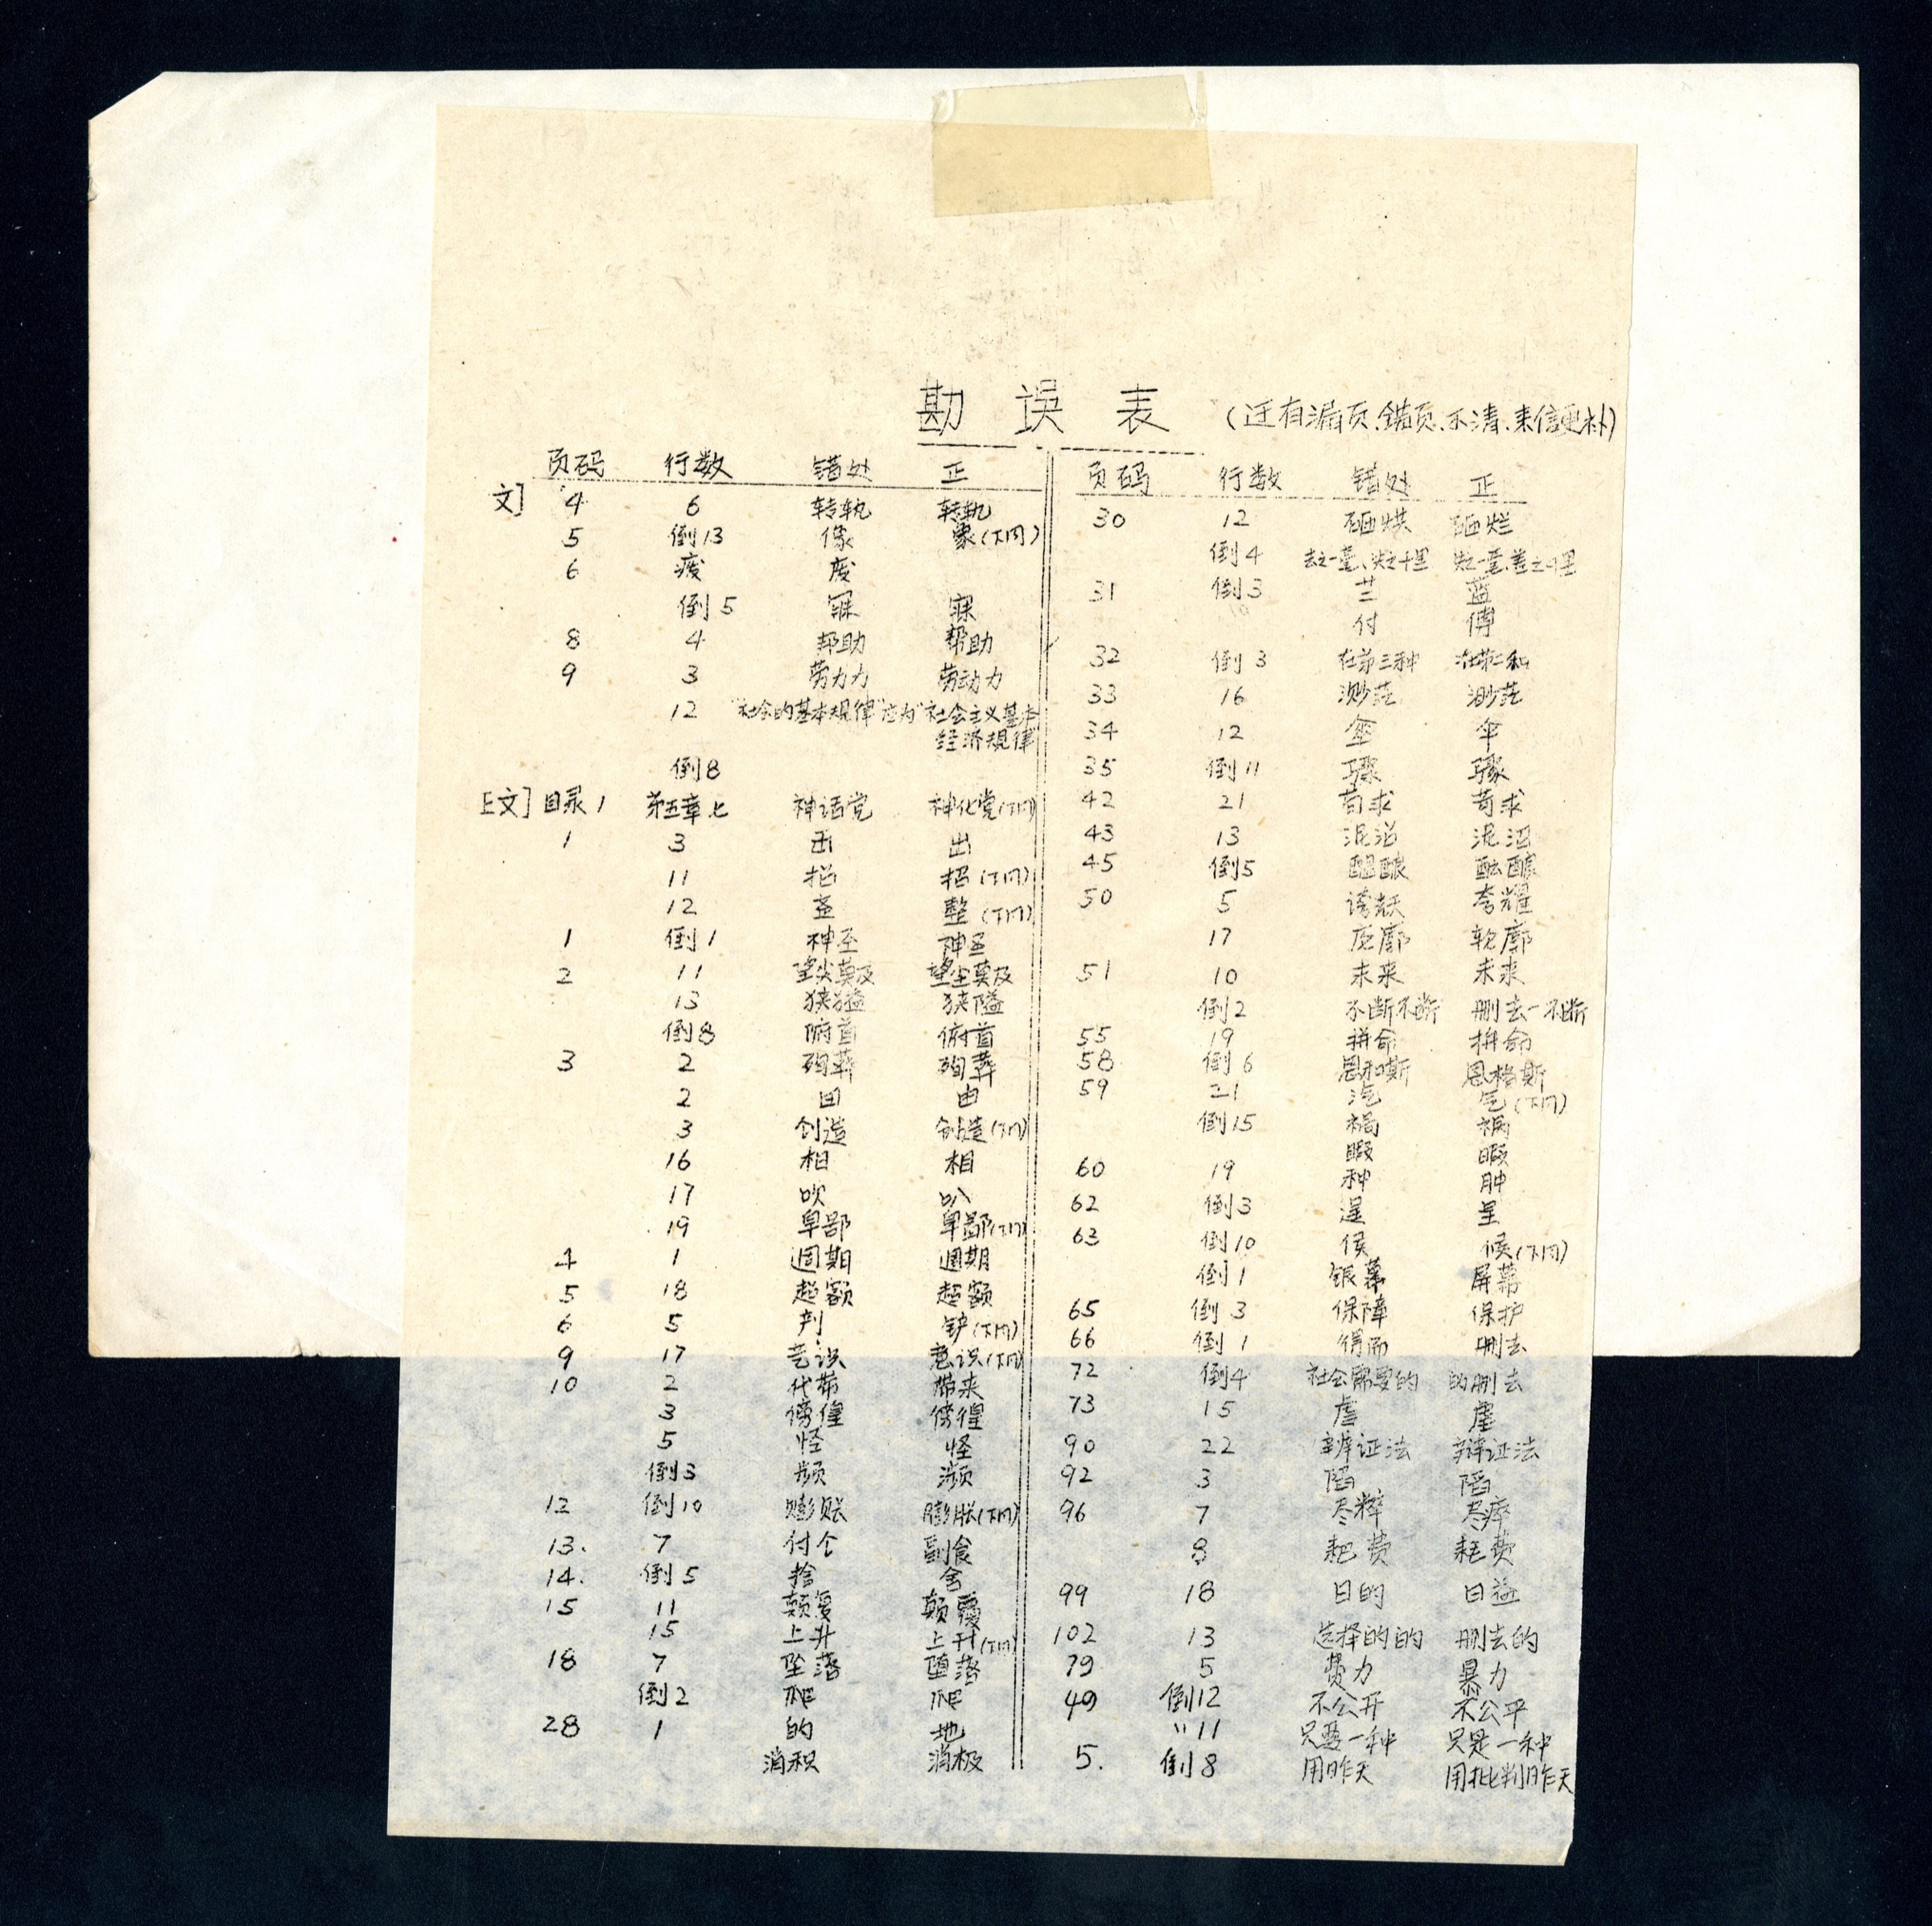 勘误表 (还有漏页、错页、不清、来信更补)
页码 行数 错处 正
文] 4 6 转轨 转轨
5 倒13 像 象(下同)
6 疲 废
倒5 寐
8 4 邦助 帮助
9 3 劳力力 劳动力
12 "社会的基本规律"应为"社会主义基本
经济规律"
倒8
[正文] 目录1 第五章七 神话党 神化党(下同)
1 3 出
11 招(下同)
12 整(下同)
1 倒1 神圣 神圣
2 11 望尖莫及 望尘莫及
13 狭 狭隘
倒8 俯首
3 2 殉葬 殉葬
2 田 由
3 创造 创造(下同)
16 相 相
17 吹 叭
19 卑鄙 卑鄙(下同)
4 1 週期 週期
5 18 超额 超额
6 5 判 铲(下同)
9 17 意识(下同)
10 2 代带 带来
3 傍徨 彷徨
5 怪 怪
倒3 频 濒
12 倒10 膨胀(下同)
13. 7 付仓 副食
14. 倒5 捨 舍
15 11 颠复 颠覆
15 上升 上升(下同)
18 7 坠落 堕落
倒2
28 1 的 地
消积 消极
页码 行数 错处 正
30 12 砸烘 砸烂
倒4 失之一毫、差之千里
31 倒3 芏 蓝
付 傅
32 倒3 在第三种 在第二种
33 16 渺茫 渺茫
34 12 伞 伞
35 倒11 骤 骤
42 21 苟求 苟求
43 13 泥沼 泥沼
45 倒5 醖酿 酝酿
50 5 夸耀
17 廓 软廓
51 10 末来 未来
倒2 不断不断 删去一不断
55 19 拼命 拼命
58 倒6 恩和斯 恩格斯
59 21 汽 气(下同)
倒15 祸 祸
暇 暇
60 19 种 肿
62 倒3 逞 呈
63 倒10 侯 候(下同)
倒1 银幕 屏幕
65 倒3 保障 保护
66 倒1 得而 删去
72 倒4 社会需要的 的删去
73 15 虐 虐
90 22 辨证法 辩证法
92 3 陷 陷
96 7 尽粹 尽瘁
8 耙费 耗费
99 18 日的 日益
102 13 选择的的 删去的
79 5 费力 暴力
49 倒12 不公开 不公平
" 11 只要一种 只是一种
5. 倒8 用昨天 用批判昨天